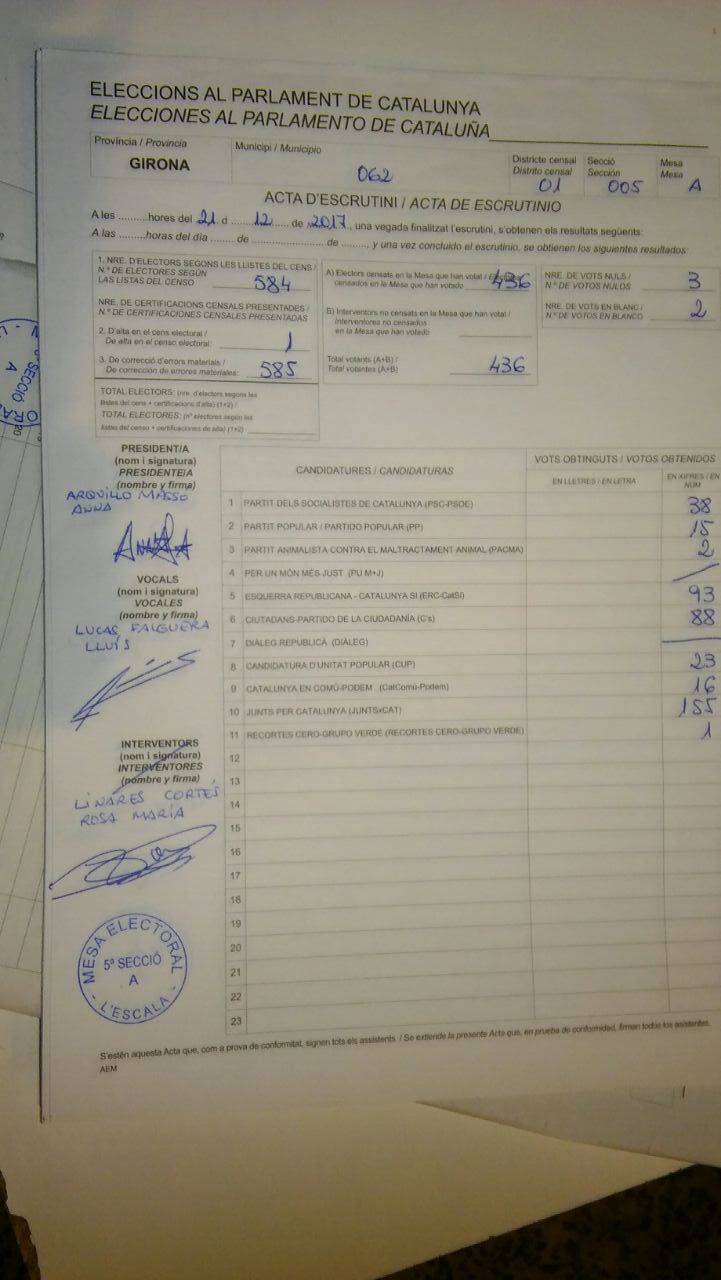 ELECCIONS AL PARLAMENT DE CATALUNYA
ELECCIONES AL PARLAMENTO DE CATALUÑA
Província / Provincia
GIRONA
Municipi / Municipio
062
Districte censal
Distrito censal
01
Secció
Sección
005
Mesa
Mesa
A
ACTA D'ESCRUTINI / ACTA DE ESCRUTINIO
A les .........hores del 21 d ... 12 ... de .2017., una vegada finalitzat l'escrutini, s'obtenen els resultats següents:
A las .........horas del día ...... de ........................ de ........, y una vez concluido el escrutinio, se obtienen los siguientes resultados:
1. NRE. D'ELECTORS SEGONS LES LLISTES DEL CENS /
N.º DE ELECTORES SEGÚN
LAS LISTAS DEL CENSO 584
NRE. DE CERTIFICACIONS CENSALS PRESENTADES /
N.º DE CERTIFICACIONES CENSALES PRESENTADAS
2. D'alta en el cens electoral /
De alta en el censo electoral: 1
3. De correcció d'errors materials /
De corrección de errores materiales: 585
TOTAL ELECTORS: (nre. d'electors segons les
llistes del cens + certificacions d'alta) (1+2) /
TOTAL ELECTORES: (nº electores según las
listas del censo + certificaciones de alta) (1+2)
A) Electors censats en la Mesa que han votat /
censados en la Mesa que han votado 436
B) Interventors no censats en la Mesa que han votat /
Interventores no censados
en la Mesa que han votado
Total votants (A+B) /
Total votantes (A+B) 436
NRE. DE VOTS NULS /
N.º DE VOTOS NULOS 3
NRE. DE VOTS EN BLANC /
N.º DE VOTOS EN BLANCO 2
PRESIDENT/A
(nom i signatura)
PRESIDENTE/A
(nombre y firma)
ARQUILLO MASSO
ANNA
VOCALS
(nom i signatura)
VOCALES
(nombre y firma)
LUCAS FALGUERA
LLUÍS
INTERVENTORS
(nom i signatura)
INTERVENTORES
(nombre y firma)
LINARES CORTÉS
ROSA MARÍA
MESA ELECTORAL
5ª SECCIÓ
A
- L'ESCALA -
CANDIDATURES / CANDIDATURAS
VOTS OBTINGUTS / VOTOS OBTENIDOS
EN LLETRES / EN LETRA
EN XIFRES / EN
NÚM
1 PARTIT DELS SOCIALISTES DE CATALUNYA (PSC-PSOE) 38
2 PARTIT POPULAR / PARTIDO POPULAR (PP) 15
3 PARTIT ANIMALISTA CONTRA EL MALTRACTAMENT ANIMAL (PACMA) 2
4 PER UN MÓN MÉS JUST (PU M+J)
5 ESQUERRA REPUBLICANA - CATALUNYA SI (ERC-CatSI) 93
6 CIUTADANS-PARTIDO DE LA CIUDADANÍA (C's) 88
7 DIÀLEG REPUBLICÀ (DIÀLEG)
8 CANDIDATURA D'UNITAT POPULAR (CUP) 23
9 CATALUNYA EN COMÚ-PODEM (CatComú-Podem) 16
10 JUNTS PER CATALUNYA (JUNTSxCAT) 155
11 RECORTES CERO-GRUPO VERDE (RECORTES CERO-GRUPO VERDE) 1
12
13
14
15
16
17
18
19
20
21
22
23
S'estén aquesta Acta que, com a prova de conformitat, signen tots els assistents. / Se extiende la presente Acta que, en prueba de conformidad, firman todos los asistentes.
AEM